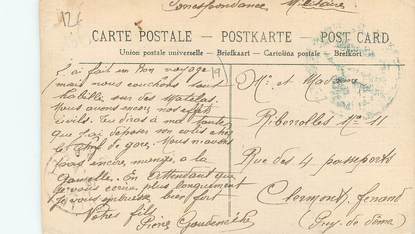 12€
Correspondance Militaire
CARTE POSTALE – POSTKARTE – POST CARD
Union postale universelle – Briefkaart – Cartolina postale – Brefkort
a fait un bon voyage
mais nous couchons tout
habillés sur des Matelas.
Nous avons encore nos effets
civils. Tu diras à ma tante
que j'ai déposer son colis chez
le chef de gare. Nous n'avons
pas encore mangé à la
Gamelle. En attendant que
je vous écrive plus longuement
Je vous embrasse bien fort
Votre fils
Mr et Madame
Rue des 4 passeports
Clermont-Ferrand
(Puy de dôme)